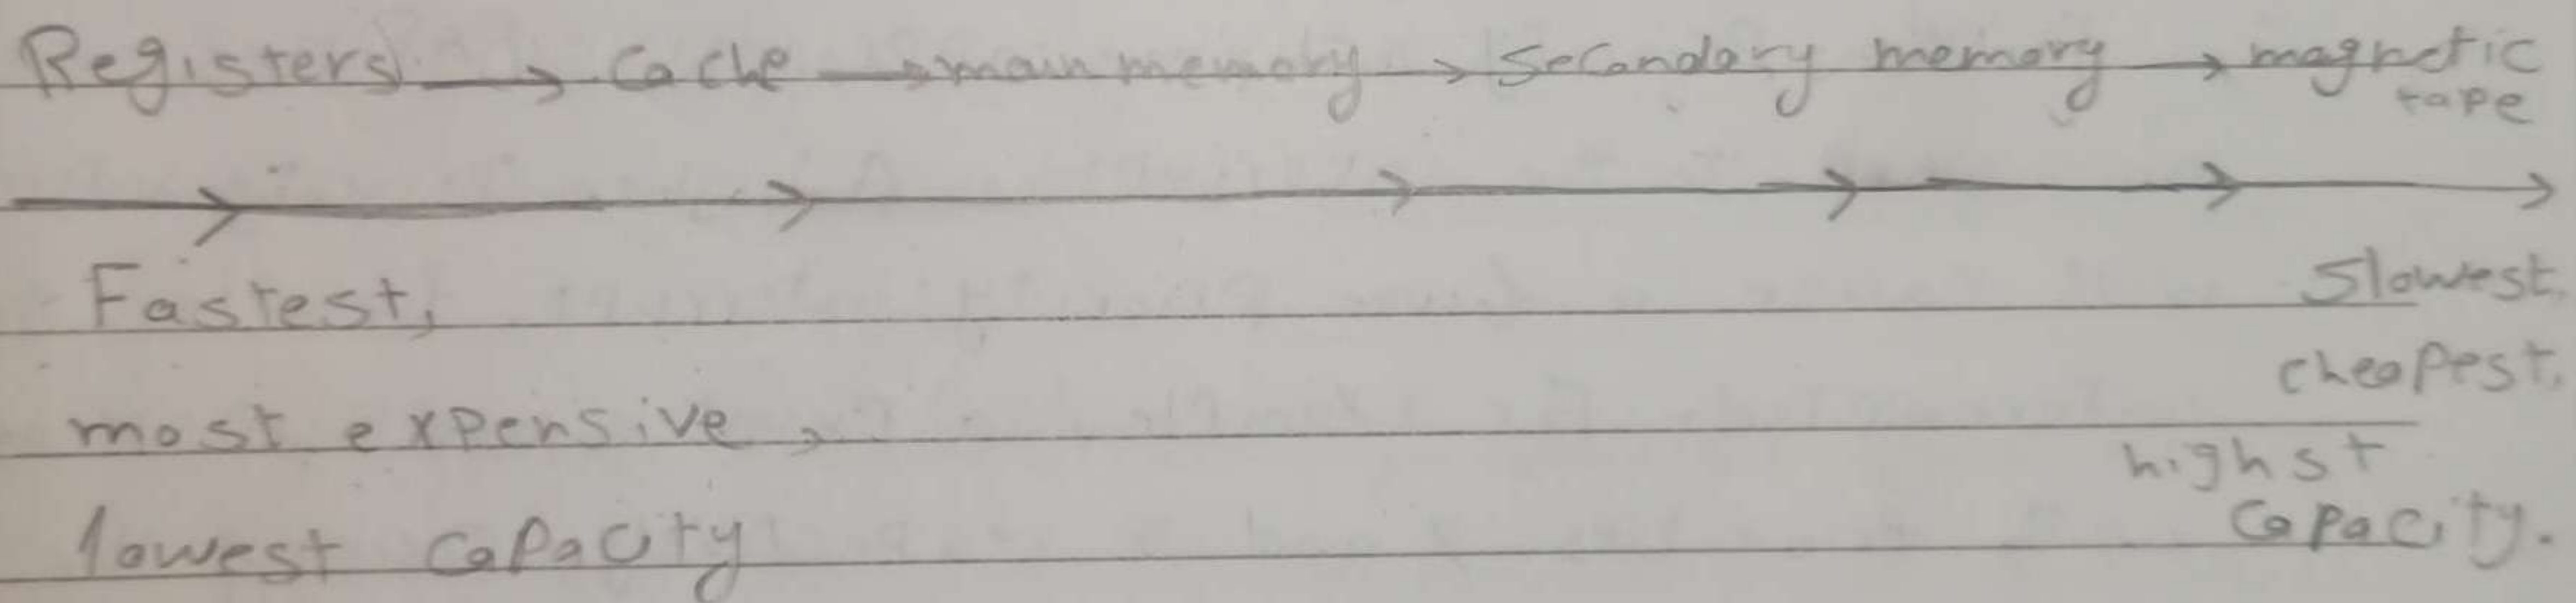 Registers → Cache → main memory → Secondary memory → magnetic
tape
Fastest, Slowest,
cheapest,
most expensive,
highst
lowest capacity capacity.